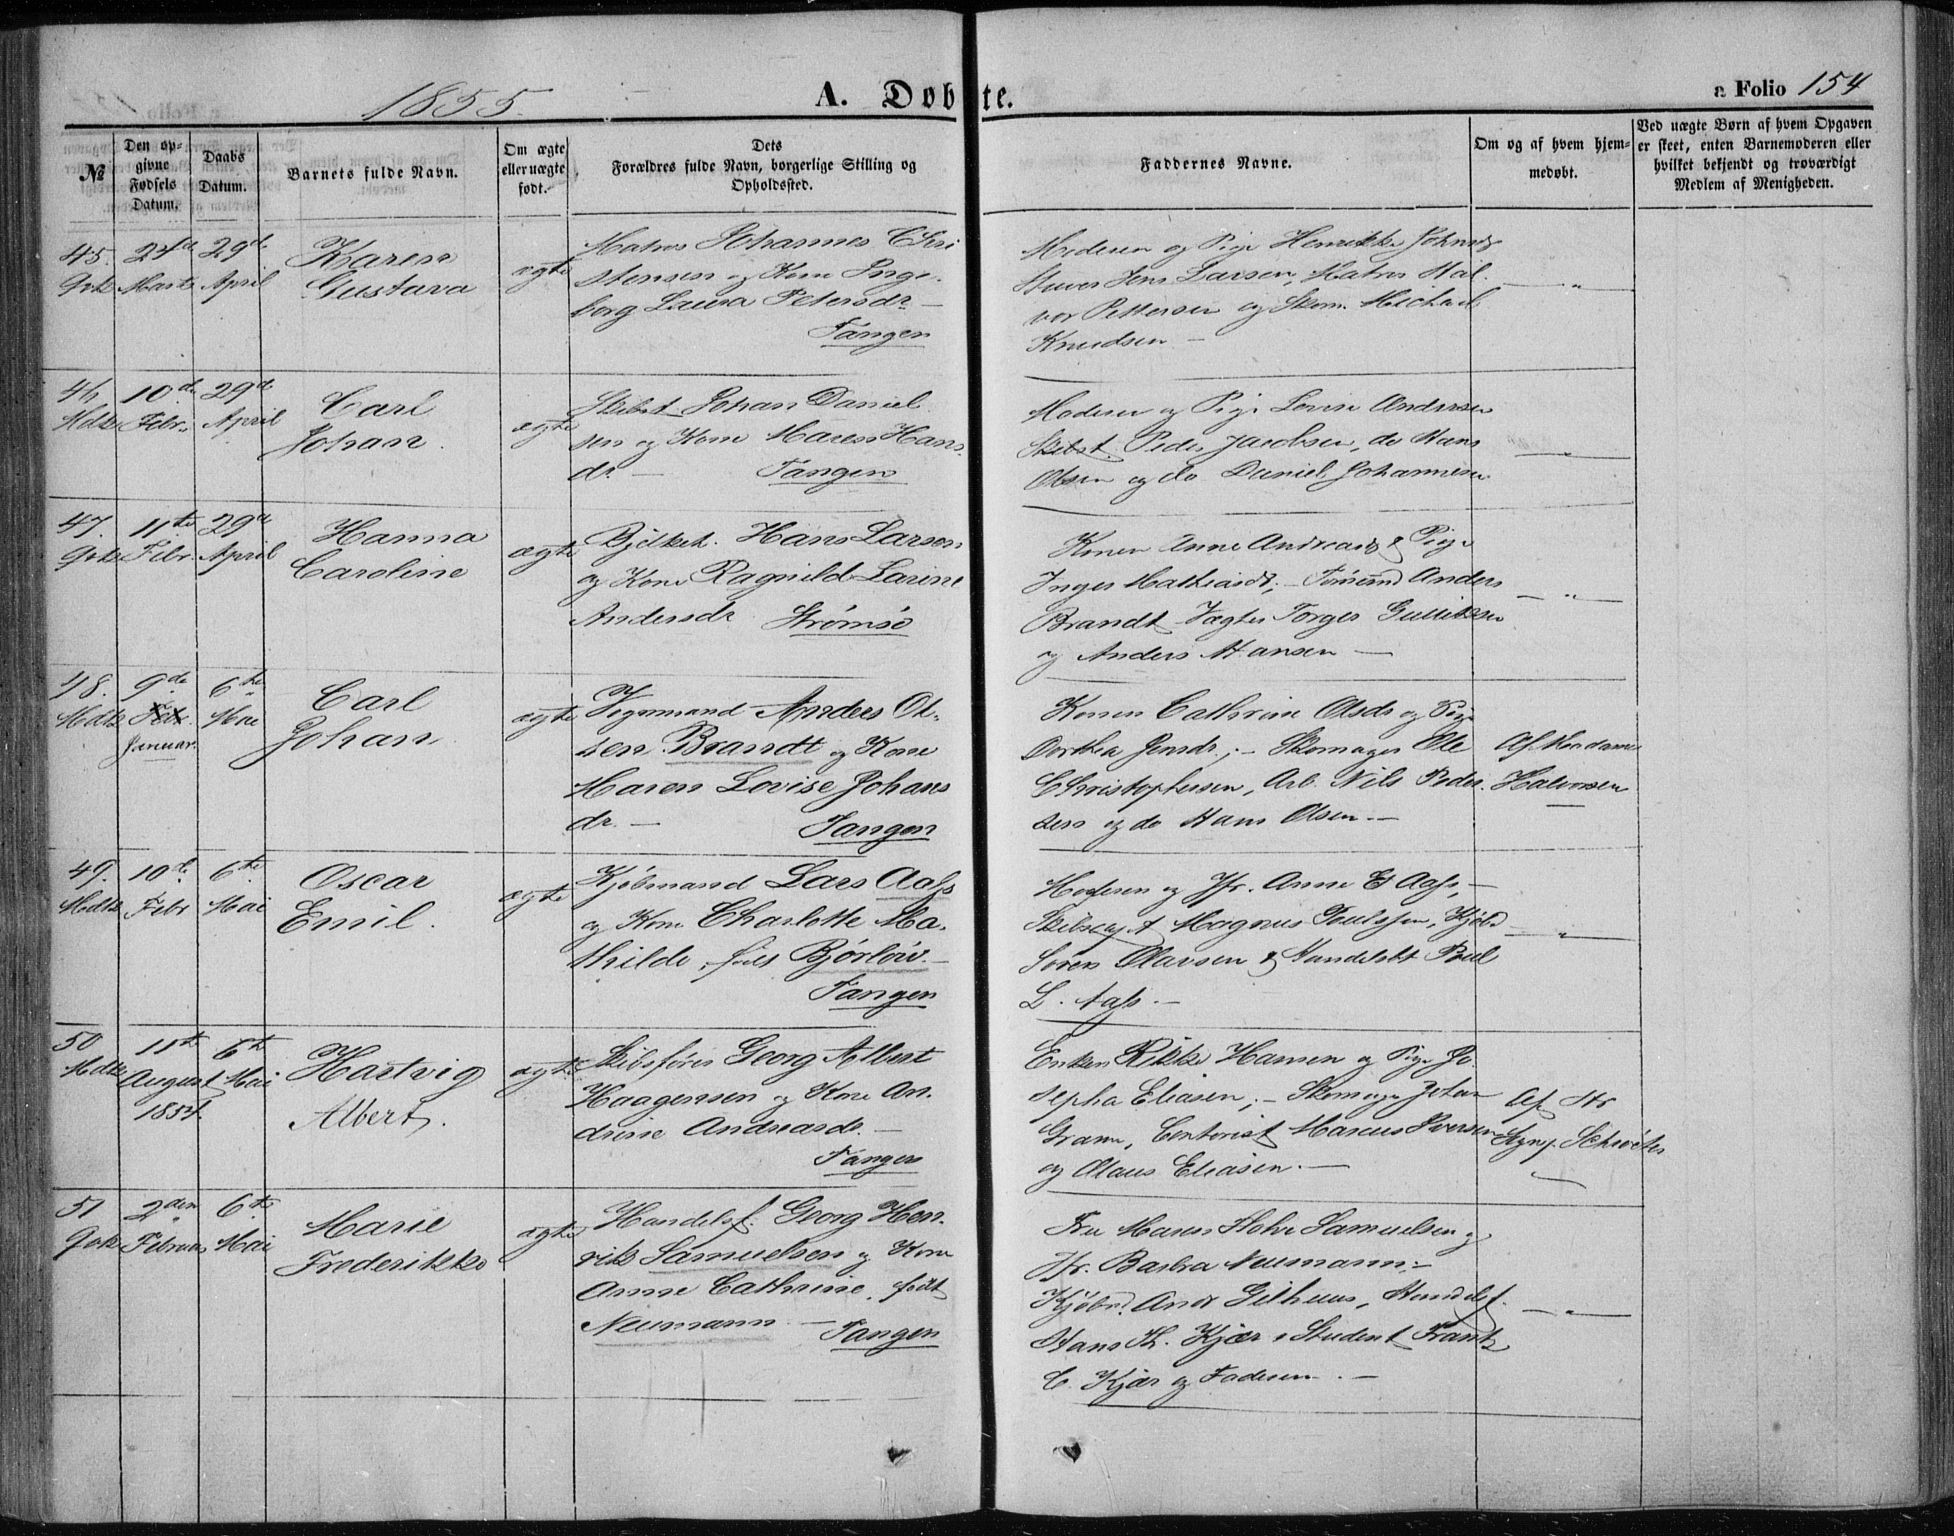 1855.
A. Døbte.
a Folio 154
№
Den opgivne Fødsels Datum.
Daabs Datum.
Barnets fulde Navn.
Om ægte eller uægte født.
Dets Forældres fulde Navn, borgerlige Stilling og Opholdssted.
Faddernes Navne.
Om og af hvem hjemmedøbt.
Ved uægte Børn af hvem Opgaven er skeet, enten Barnemoderen eller hvilket bekjendt og troværdigt Medlem af Menigheden.
45. 24de 29de Karen ægte Matros Johannes Chri
Marts April Gustava stensen og Kone Inge-
borg Laura Petersdr -
Tangen
Moderen og Pige Henrikke Johnsd
Stuver Jens Larsen, Matros Hal-
vor Pettersen og Skom. Michael
Knudsen -
46 10de 29de Carl ægte Skibst. Johan Daniel
Febr. April Johan. sen og Kone Maren Hans
dr. - Tangen
Moderen og Pige Lovise Andersen
Skibst. Peder Jacobsen, do Hans
Olsen og do Daniel Johannesen
47. 11te 29de Hanna ægte Hans Larsen
Febr. April Caroline og Kone Ragnild Larine
Andersdr. Strømsø
Konen Anne Andreasd & Pige
Inger Mathiasdr; - Tømmd Anders
Brandt Vægter Torger Gulliksen
og Anders Hansen -
48. 9de 6te Carl ægte Vognmand Anders Ol-
Febr. Mai Johan sen Brandt og Kone
Januar. Maren Lovise Johans
dr. - Tangen
Konen Cathrine Olsdr og Pige
Dorthea Jensdr; - Skomager Ole
Christophersen, Arb. Nils Peder-
sen og do Hans Olsen. -
Af Madame
Halvorsen
49. 10de 6te Oscar ægte Kjøbmand Lars Aass
Febr Mai Emil. og Kone Charlotte Ma-
thilde, født Bjørløw. -
Tangen
Moderen og Jfr. Anne E Aass, -
Magnus Poulssen, Kjøbd
Søren Olavsen & Handelsbt Poul
L. Aass. -
50 11te 6te Hartvig ægte Skibsfører Georg Albert
August Mai Albert. Haagensen og Kone An-
1854. drine Andreasdr. -
Tangen
Enken Rikke Hansen og Pige Jo-
sepha Eliasen; - Skomager Johan
Gram, Contorist Marcus Iversen
og Olaus Eliasen. -
Af Hr
Schrøter
51 2den 6te Marie ægte Handelsf. Georg Hen-
Februar Mai Frederikke rik Samuelsen og Kone
Anne Cathrine, født
Neumann. - Tangen
Fru Maren Holm Samuelsen og
Jfr. Barbra Neumann. -
Kjøbmd. Andr Gilhuus, Handelsf.
Hans Th. Kjær, Student Frantz
C. Kjær og Faderen. -